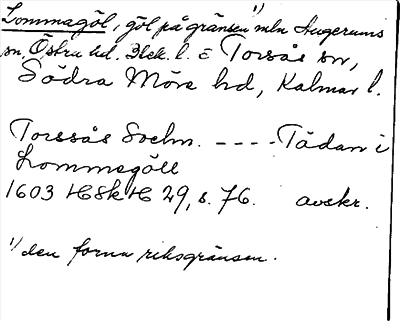 Lommagöl, göl på gränsen ¹⁾ mln Augerums
sn, Östra hd, Blek. l. & Torsås sn,
Södra Möre hd, Kalmar l.
Torssås Sochn. ---- Tädan i
Lommegöll
1603 HSkH 29, s. 76. avskr.
¹⁾ den forna riksgränsen.